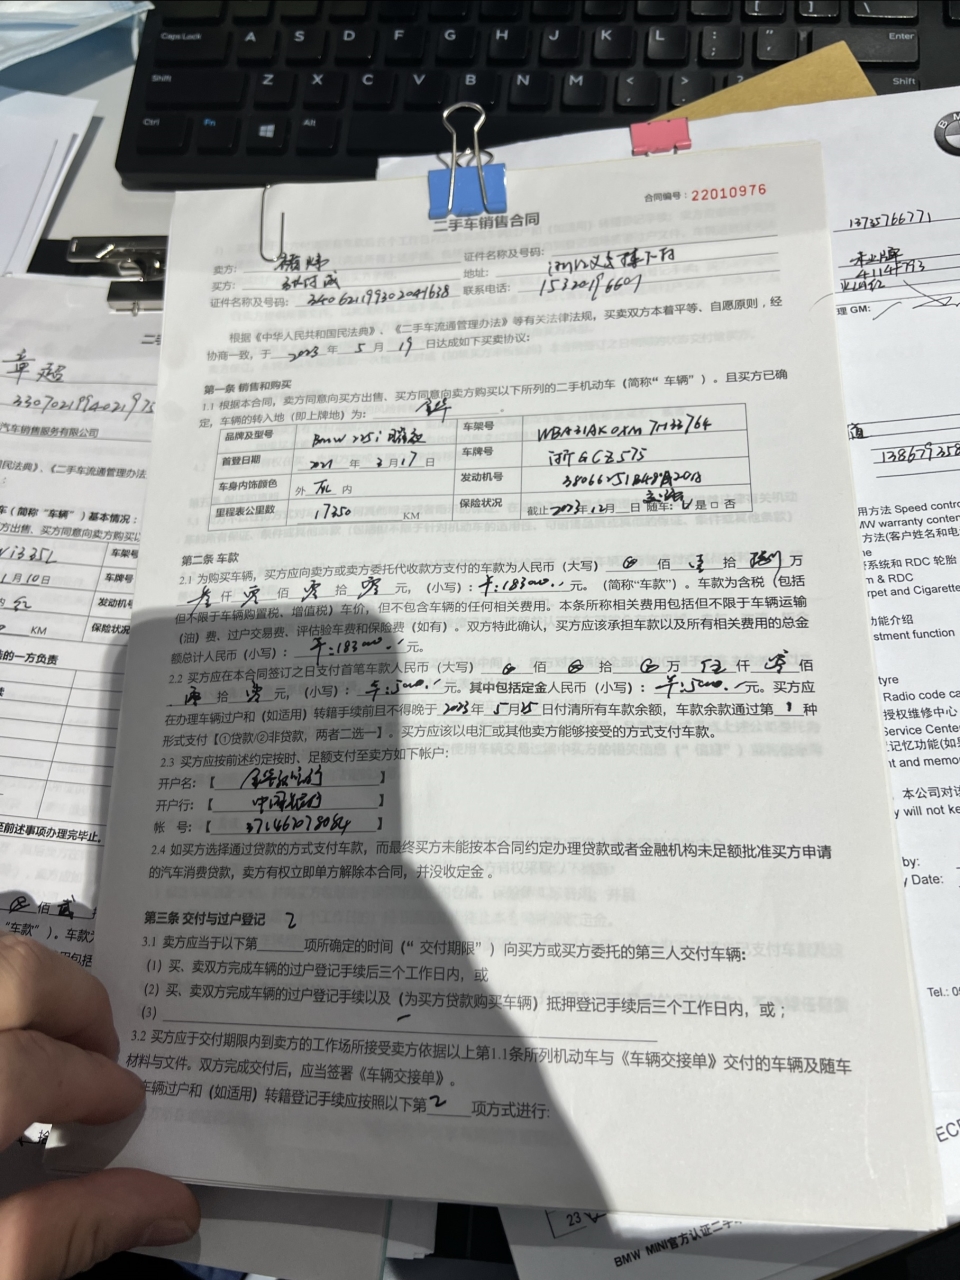 Caps Lock A S D F G H J K L : ; " ' Enter
Shift Z X C V B N M < > ? Shift
Ctrl Fn Alt
合同编号：22010976
二手车销售合同
卖方：
证件名称及号码：
买方：
地址：
证件名称及号码：340621199302041638 联系电话：15320196601
根据《中华人民共和国民法典》、《二手车流通管理办法》等有关法律法规，买卖双方本着平等、自愿原则，经
协商一致，于 2023 年 5 月 19 日达成如下买卖协议：
第一条 销售和购买
1.1 根据本合同，卖方同意向买方出售、买方同意向卖方购买以下所列的二手机动车（简称“车辆”）。且买方已确
定，车辆的转入地（即上牌地）为：金华。
品牌及型号 Bmw 225i 车架号
首登日期 2021 年 3 月 17 日 车牌号 浙GCZ575
车身内饰颜色 外 内 发动机号
里程表公里数 17350 KM 保险状况 截止2023年12月 日 随车：是 □ 否
第二条 车款
2.1 为购买车辆，买方应向卖方或卖方委托代收款方支付的车款为人民币（大写） 佰 壹 拾 捌 万
叁 仟 零 佰 零 拾 零 元，（小写）：¥:183000.- 元。（简称“车款”）。车款为含税（包括
但不限于车辆购置税、增值税）车价，但不包含车辆的任何相关费用。本条所称相关费用包括但不限于车辆运输
（油）费、过户交易费、评估验车费和保险费（如有）。双方特此确认，买方应该承担车款以及所有相关费用的总金
额总计人民币（小写）：¥:183000.- 元。
2.2 买方应在本合同签订之日支付首笔车款人民币（大写） 佰 拾 万 伍 仟 零 佰
零 拾 零 元，（小写）：¥:5000.- 元。其中包括定金人民币（小写）：¥:5000.- 元。买方应
在办理车辆过户和（如适用）转籍手续前且不得晚于 2023年 5月25日付清所有车款余额，车款余款通过第 1 种
形式支付【①贷款②非贷款，两者二选一】。买方应该以电汇或其他卖方能够接受的方式支付车款。
2.3 买方应按前述约定按时、足额支付至卖方如下帐户：
开户名：【 】
开户行：【 中国银行 】
帐 号：【 371467078084 】
2.4 如买方选择通过贷款的方式支付车款，而最终买方未能按本合同约定办理贷款或者金融机构未足额批准买方申请
的汽车消费贷款，卖方有权立即单方解除本合同，并没收定金。
第三条 交付与过户登记
3.1 卖方应当于以下第 2 项所确定的时间（“交付期限”）向买方或买方委托的第三人交付车辆：
(1) 买、卖双方完成车辆的过户登记手续后三个工作日内，或
(2) 买、卖双方完成车辆的过户登记手续以及（为买方贷款购买车辆）抵押登记手续后三个工作日内，或；
(3)
3.2 买方应于交付期限内到卖方的工作场所接受卖方依据以上第1.1条所列机动车与《车辆交接单》交付的车辆及随车
材料与文件。双方完成交付后，应当签署《车辆交接单》。
车辆过户和（如适用）转籍登记手续应按照以下第 2 项方式进行：
汽车销售服务有限公司
民法典》、《二手车流通管理办法
车（简称“车辆”）基本情况：
车架号
1 月 10 日 车牌号
发动机号
KM 保险状况
的一方负责
至前述事项办理完毕止。
佰
“车款”）。车款为
13735766771
理 GM:
用方法 Speed contro
MW warranty conten
方法(客户姓名和电
系统和 RDC 轮胎
m & RDC
rpet and Cigarette
功能介绍
stment function
tyre
Radio code ca
授权维修中心
Service Center
记忆功能(如
nt and memo
，本公司对该
y will not ke
by:
Date:
Tel.: 0
23
BMW MINI官方认证二手